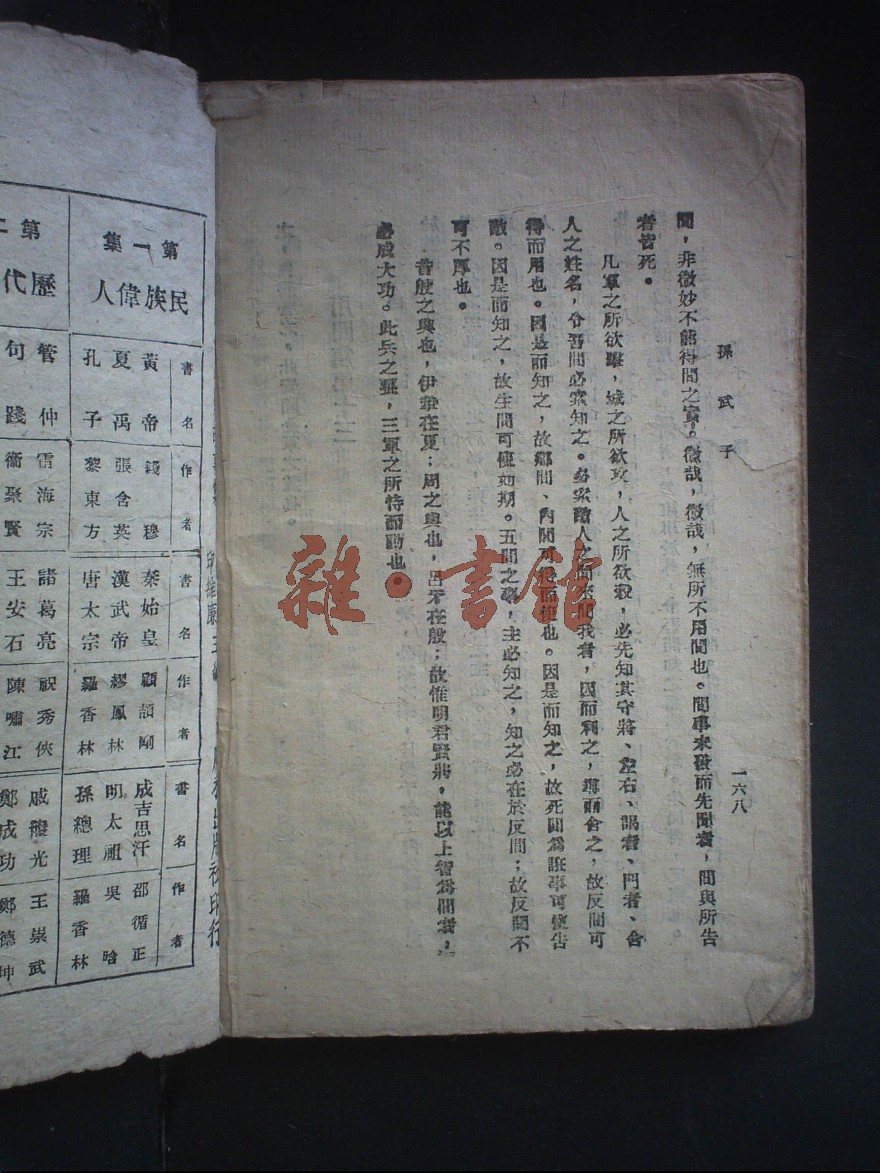 孫武子
一六八
間，非微妙不能得間之實。微哉，微哉，無所不用間也。間事未發而先聞者，間與所告
者皆死。
凡軍之所欲擊，城之所欲攻，人之所欲殺，必先知其守將、左右、謁者、門者、舍
人之姓名，令吾間必索知之。必索敵人之間來間我者，因而利之，導而舍之，故反間可
得而用也。因是而知之，故鄉間、內間可得而使也。因是而知之，故死間爲誑事可使告
敵。因是而知之，故生間可使如期。五間之事，主必知之，知之必在於反間；故反間不
可不厚也。
昔殷之興也，伊摯在夏；周之興也，呂牙在殷；故惟明君賢將，能以上智爲間者，
必成大功。此兵之要，三軍之所恃而動也。
雜·書館
第一集
民族偉人
書名
黃帝
夏禹
孔子
作者
錢穆
張含英
黎東方
書名
秦始皇
漢武帝
唐太宗
作者
顧頡剛
繆鳳林
羅香林
書名
成吉思汗
明太祖
孫總理
作者
邵循正
吳晗
羅香林
第二
歷代
管仲
句踐
雷海宗
衞聚賢
諸葛亮
王安石
祝秀俠
陳嘯江
戚繼光
鄭成功
王崇武
鄭德坤
印維廉主
出版社印行